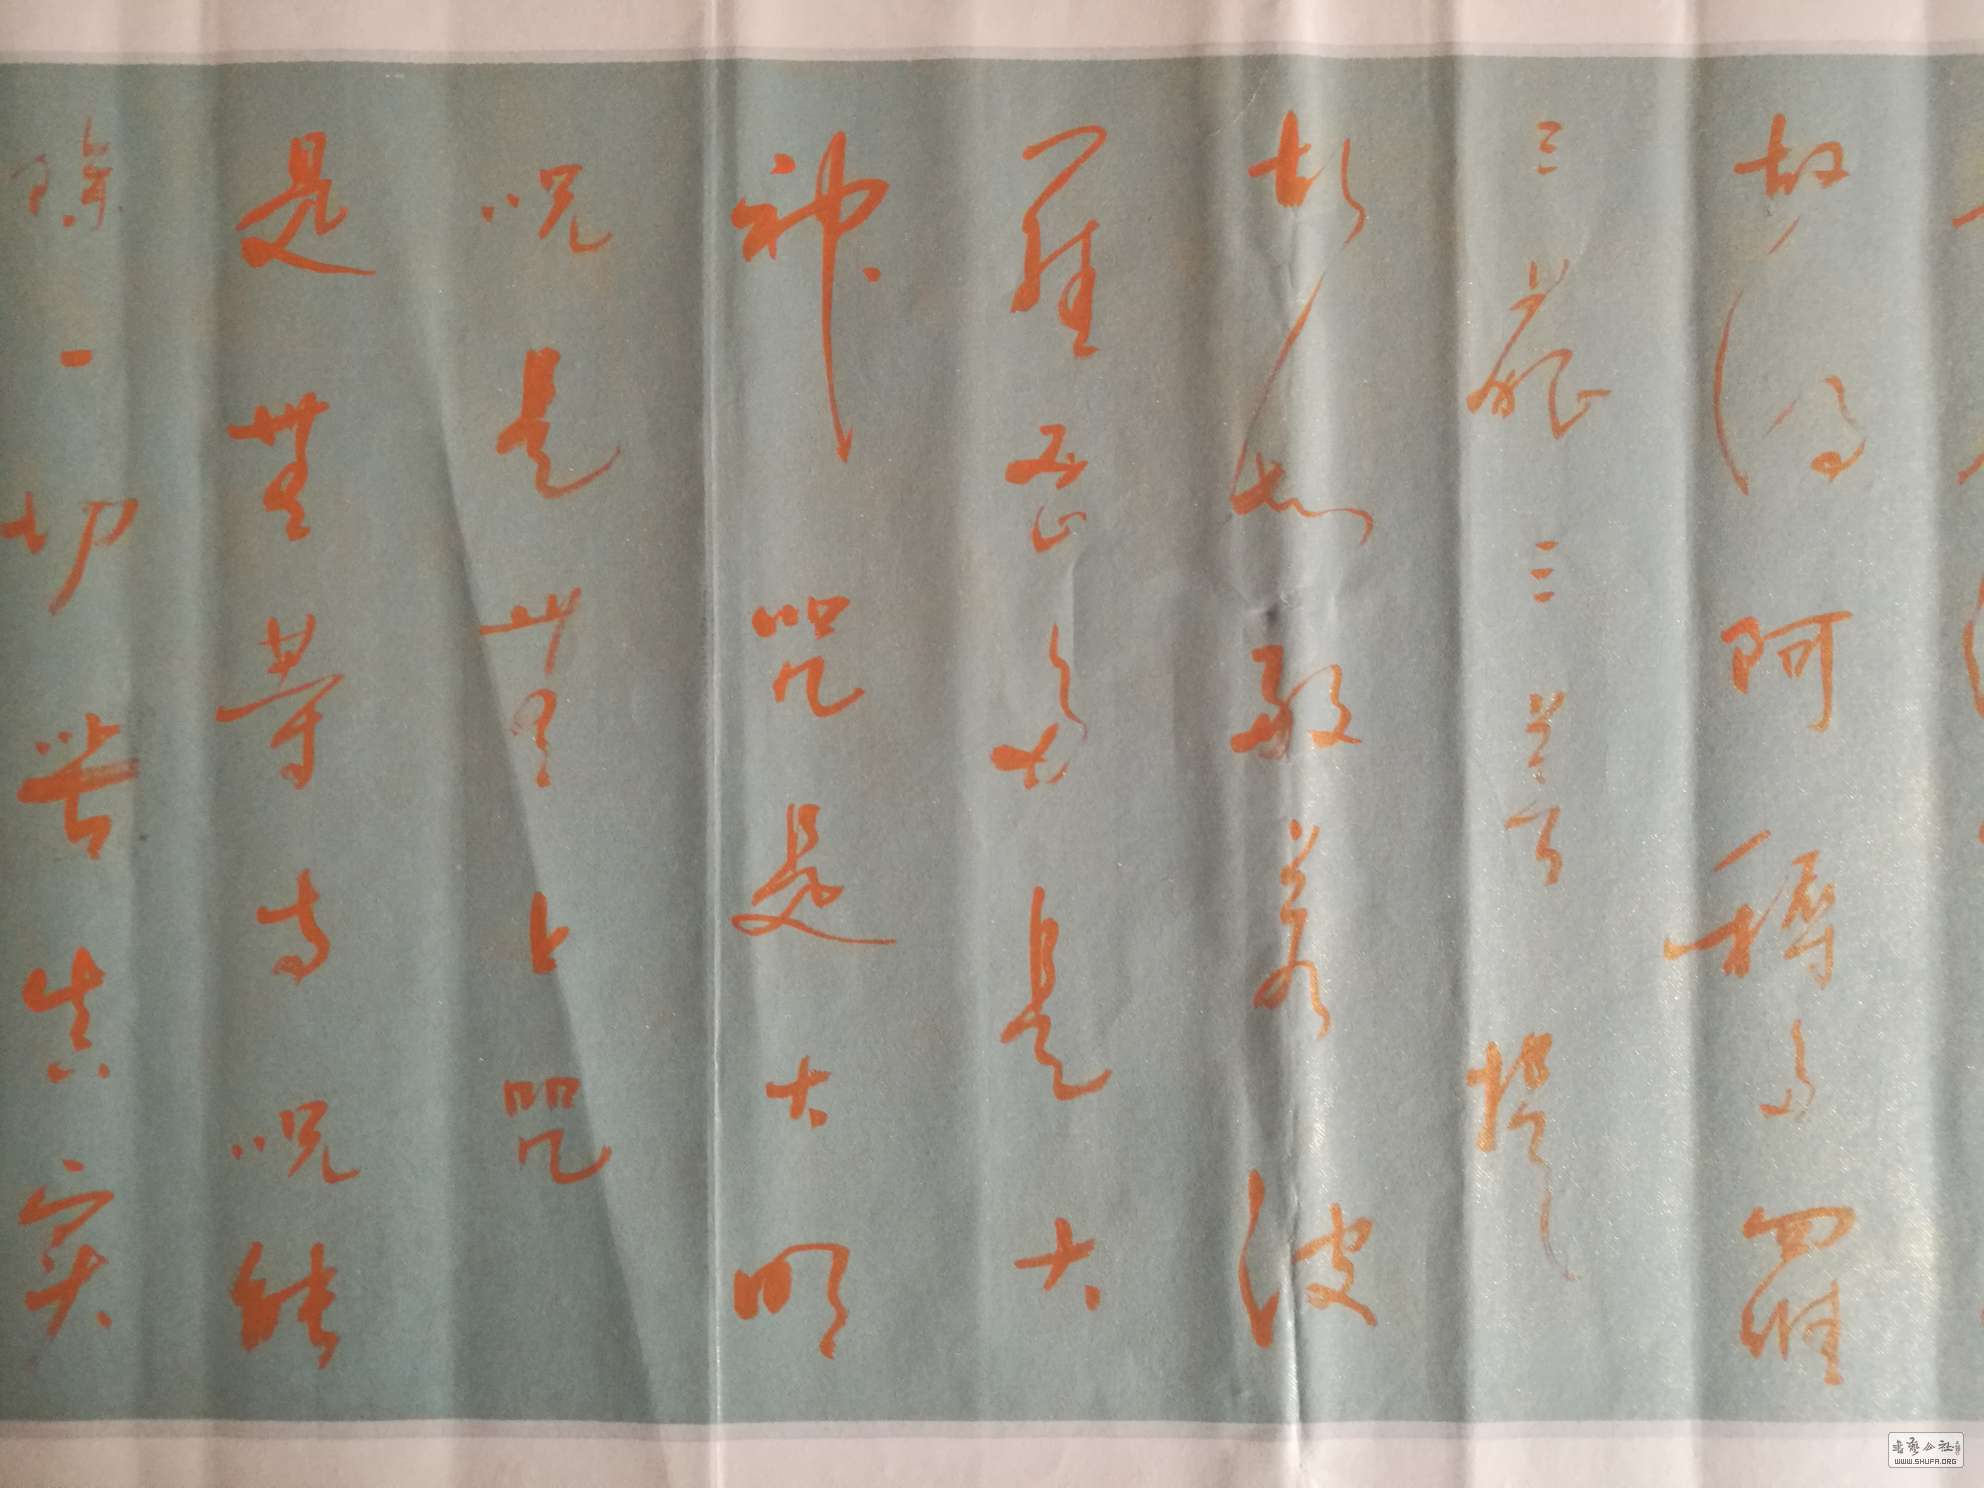 故得阿耨多羅
三藐三菩提
故知般若波
羅蜜多是大
神咒是大明
呪是無上咒
是無等等呪能
除一切苦真實
書藝公社
WWW.SHUFA.ORG